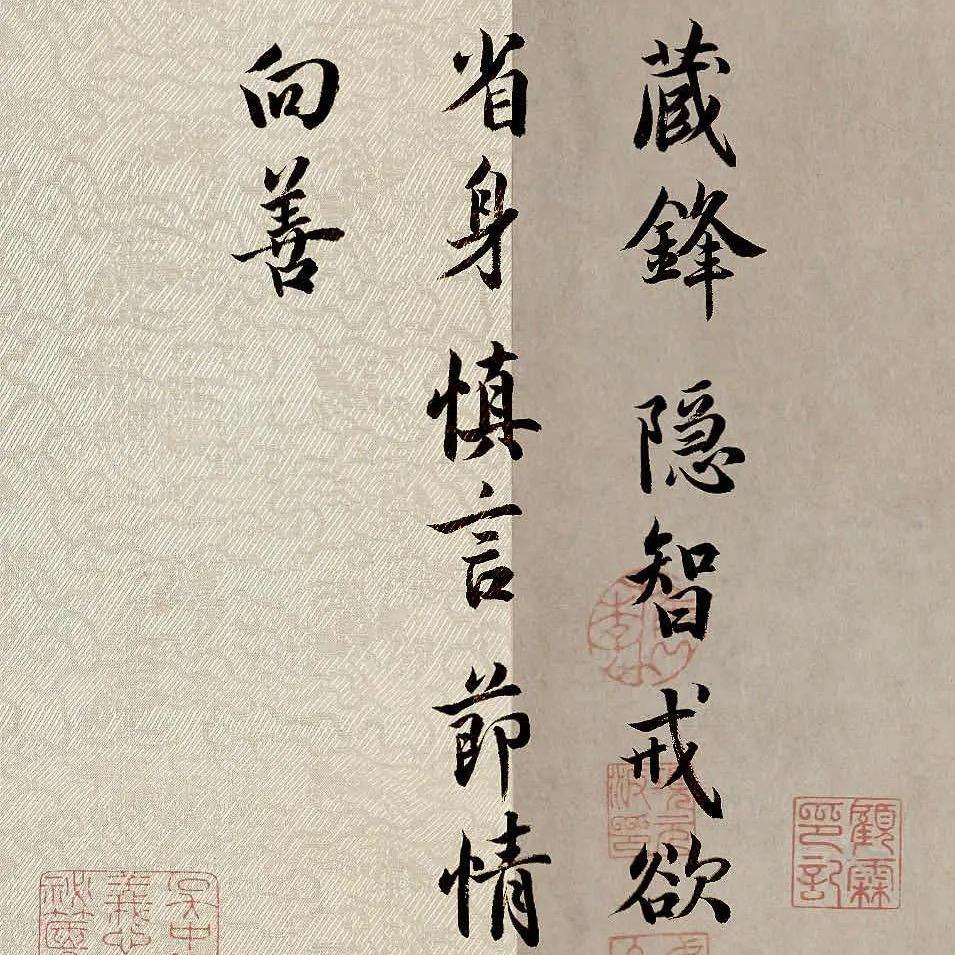 藏鋒 隱智戒欲
省身 慎言 節情
向善
顧霖